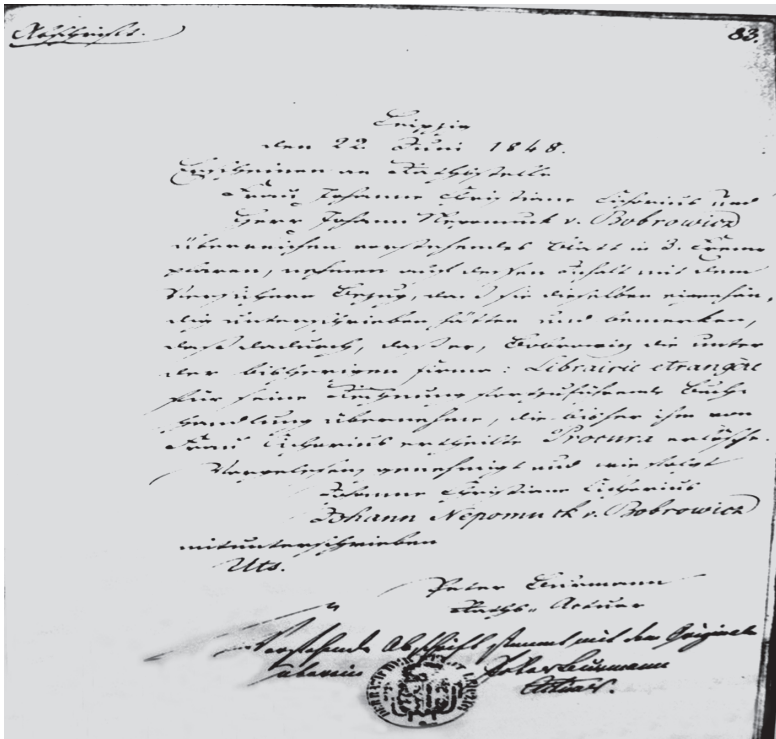 Abschrift.
83.
Leipzig
den 22 Juni 1848.
Erscheinen an Rathsstelle
Frau Johanne Christiane Cichorius und
Herr Johann Nepomuck v. Bobrowicz
überreichen vorstehendes Blatt in 3. Exem-
plaren, nehmen auf dessen Inhalt mit dem
Bezug, daß sie dieselben eigenhän-
dig unterschrieben hätten und bemerken,
daß dadurch, daß er, Bobrowicz die unter
der bisherigen Firma: Librairie etrangère
für seine Rechnung fortzuführende Buch-
handlung übernehme, die bisher ihm von
Frau Cichorius ertheilte Procura erlösche.
Vorgelesen, genehmigt und wie folgt
Johanne Christiane Cichorius
Johann Nepomuck v. Bobrowicz
mitunterschrieben
Uts.
Peter
Raths-Actuar
Vorstehende Abschrift stimmt mit dem Original
überein
Actuar.